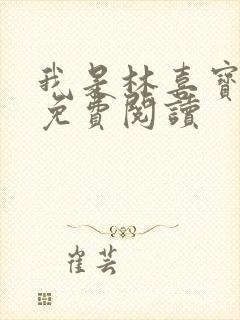 我是林喜寶
免費閱讀
崔芸